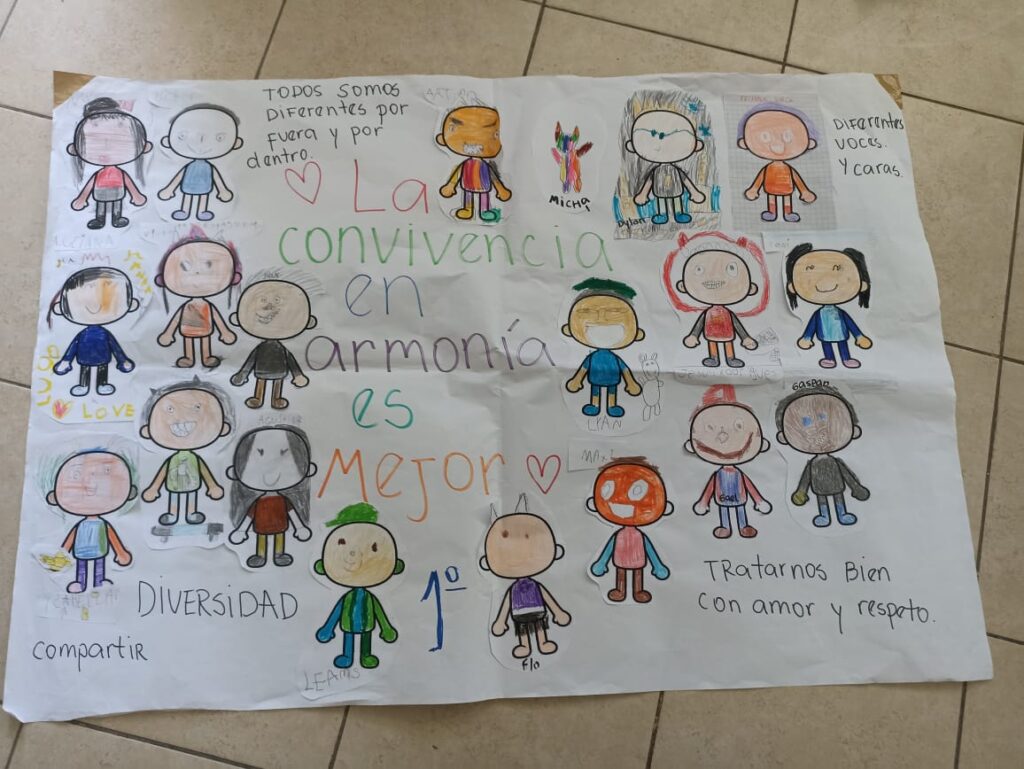 TODOS SOMOS
DIFERENTES POR
FUERA Y POR
dentro.
ARTURO
MICHA
Dylan
DIFERENTES
VOCES.
Y CARAS.
La
CONVIVENCIA
en
armonía
es
Mejor
LUCIANA
LOVE
LIAN
GASPAR
Gael
DIVERSIDAD
1º
Flo
compartir
TRatarnos Bien
con amor y respeto.